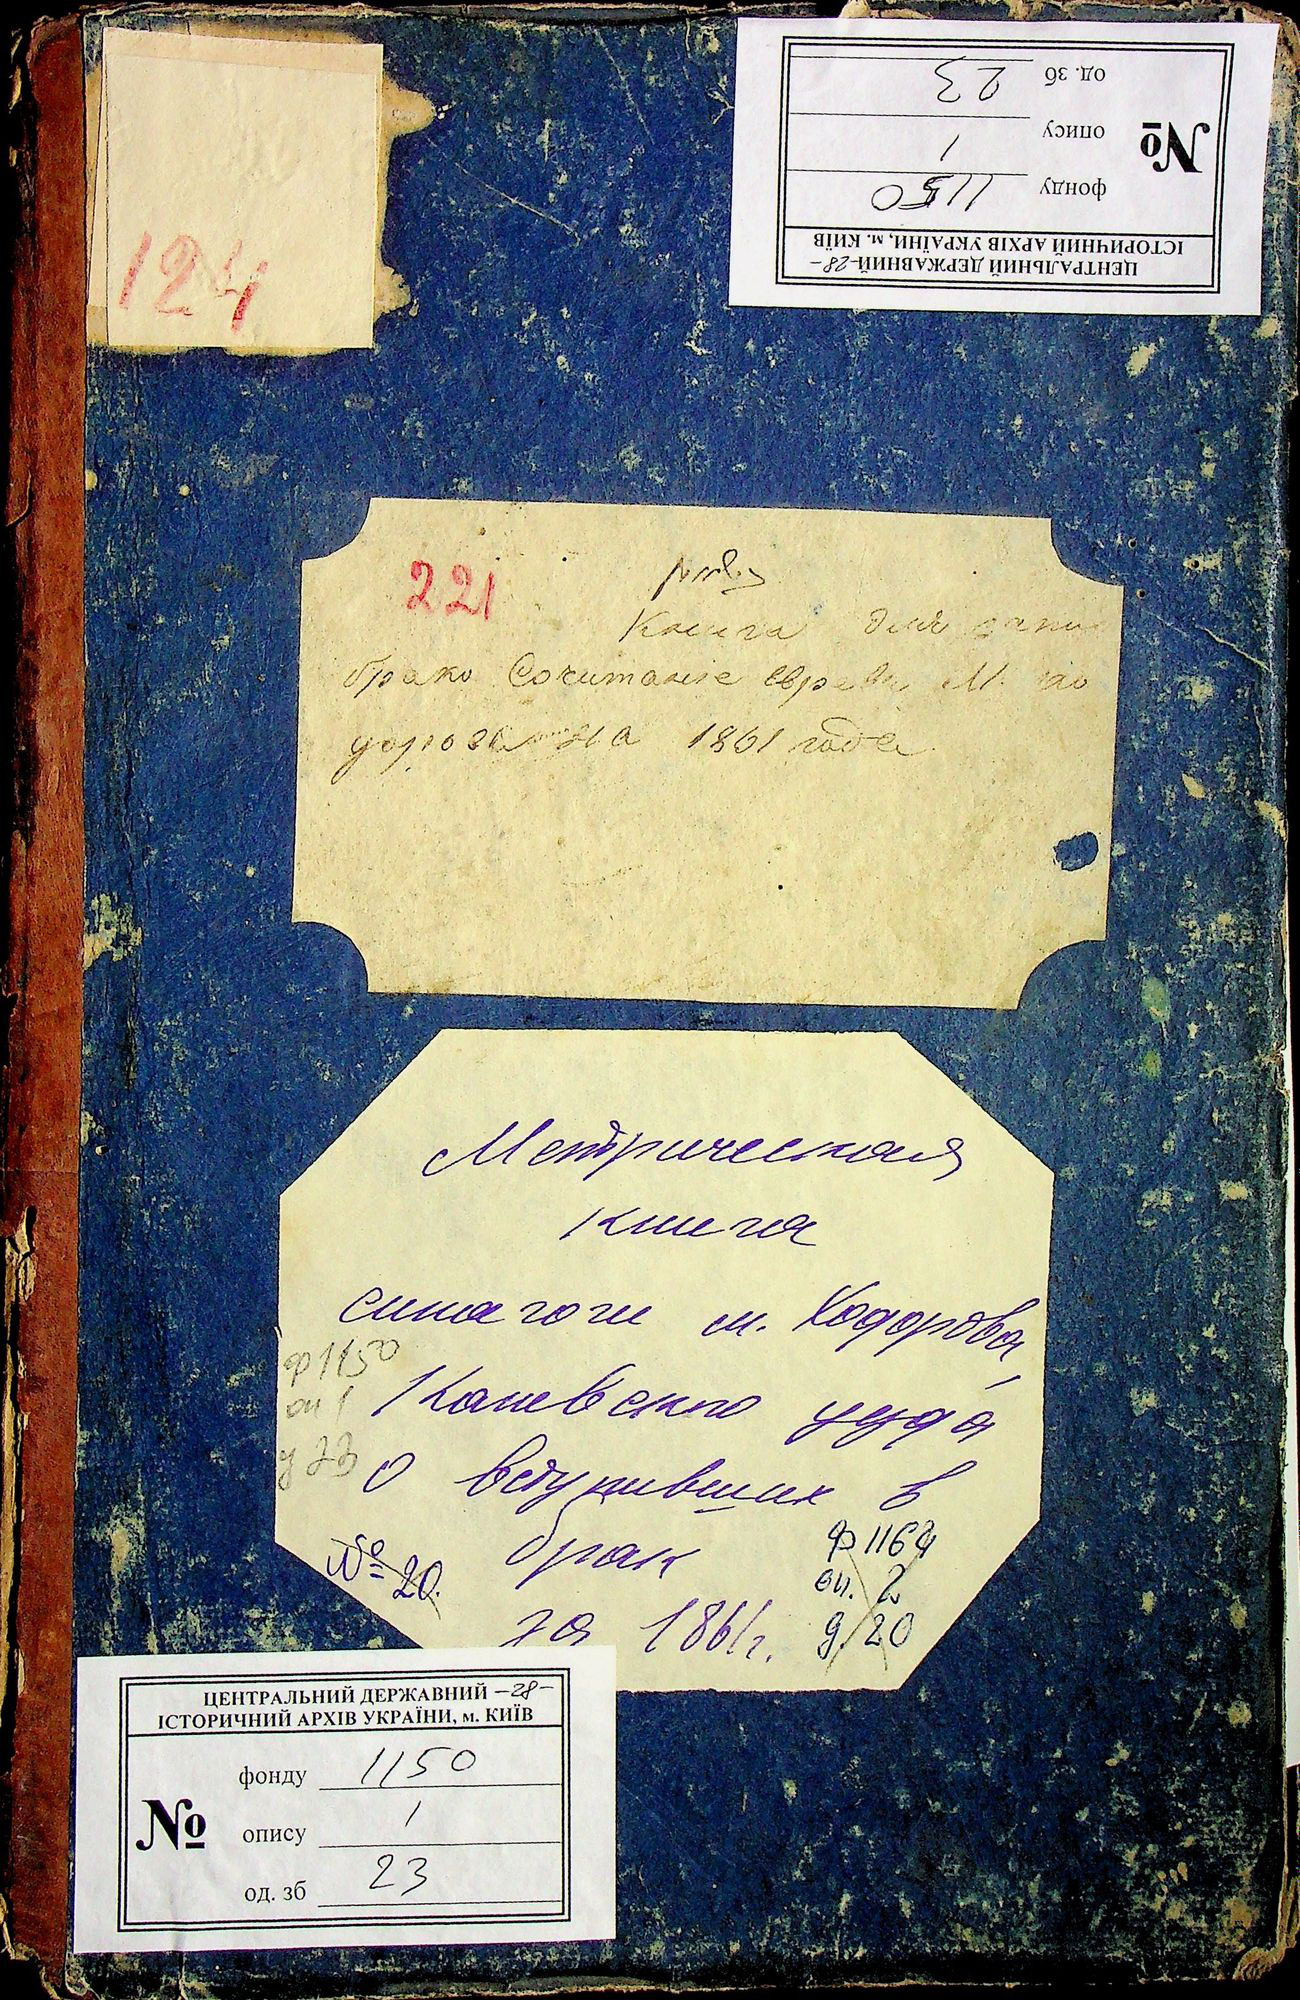 124
ЦЕНТРАЛЬНИЙ ДЕРЖАВНИЙ -28-
ІСТОРИЧНИЙ АРХІВ УКРАЇНИ, м. КИЇВ
№
фонду 1150
опису 1
од. зб 23
221
Книга для
брако Сочитание м.
на 1861 года
Метрическая
книга
синагоги м. Ходорова,
Каневского уезда
о вступивших в
брак
за 1861 г.
ф 1150
оп 1
23
№ 20.
ф 1164
оп. 2
д. 20
ЦЕНТРАЛЬНИЙ ДЕРЖАВНИЙ -28-
ІСТОРИЧНИЙ АРХІВ УКРАЇНИ, м. КИЇВ
№
фонду 1150
опису 1
од. зб 23